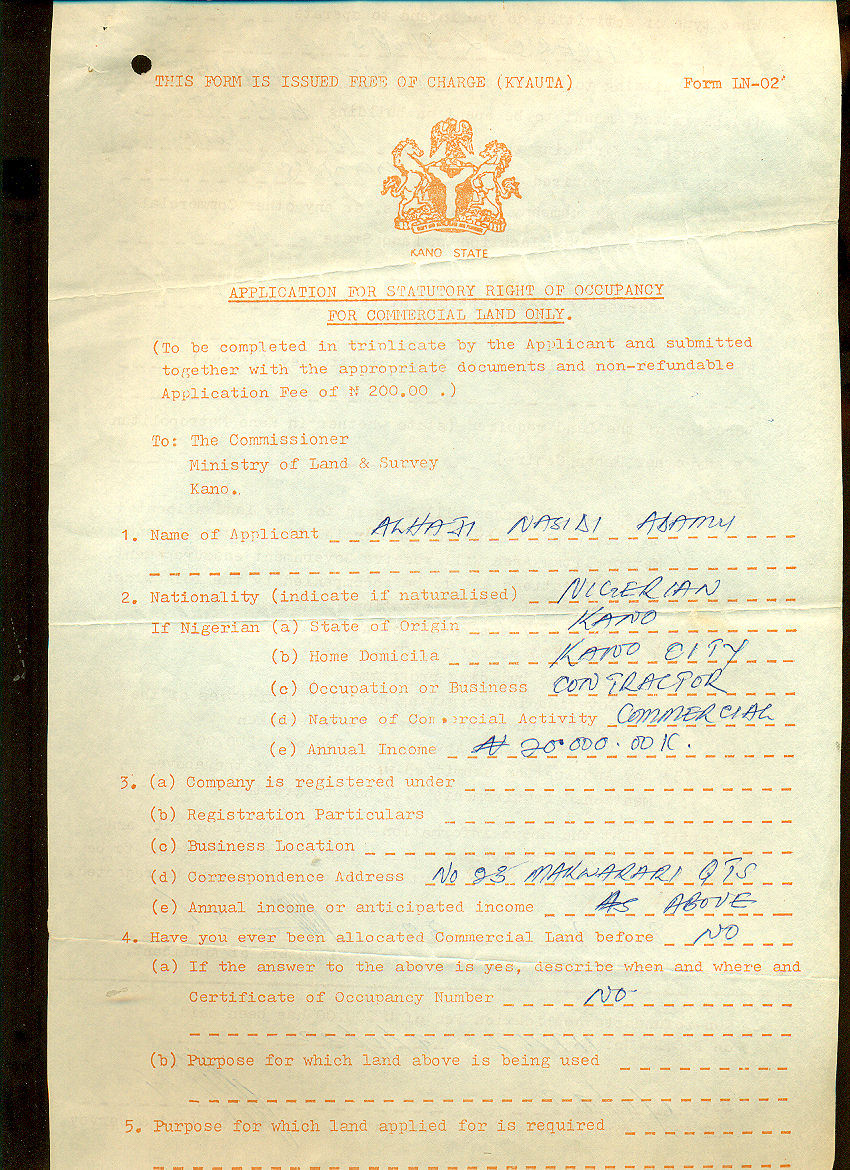 THIS FORM IS ISSUED FREE OF CHARGE (KYAUTA) Form LN-02
KANO STATE
APPLICATION FOR STATUTORY RIGHT OF OCCUPANCY
FOR COMMERCIAL LAND ONLY.
(To be completed in triplicate by the Applicant and submitted
together with the appropriate documents and non-refundable
Application Fee of ₦ 200.00 .)
To: The Commissioner
Ministry of Land & Survey
Kano.
1. Name of Applicant ALHAJI NASIDI ADAMU
2. Nationality (indicate if naturalised) NIGERIAN
If Nigerian (a) State of Origin KANO
(b) Home Domicila KANO CITY
(c) Occupation or Business CONTRACTOR
(d) Nature of Commercial Activity COMMERCIAL
(e) Annual Income ₦ 20.000.00 K.
3. (a) Company is registered under
(b) Registration Particulars
(c) Business Location
(d) Correspondence Address No 23 MAKWARARI QTS
(e) Annual income or anticipated income AS ABOVE
4. Have you ever been allocated Commercial Land before NO
(a) If the answer to the above is yes, describe when and where and
Certificate of Occupancy Number NO
(b) Purpose for which land above is being used
5. Purpose for which land applied for is required